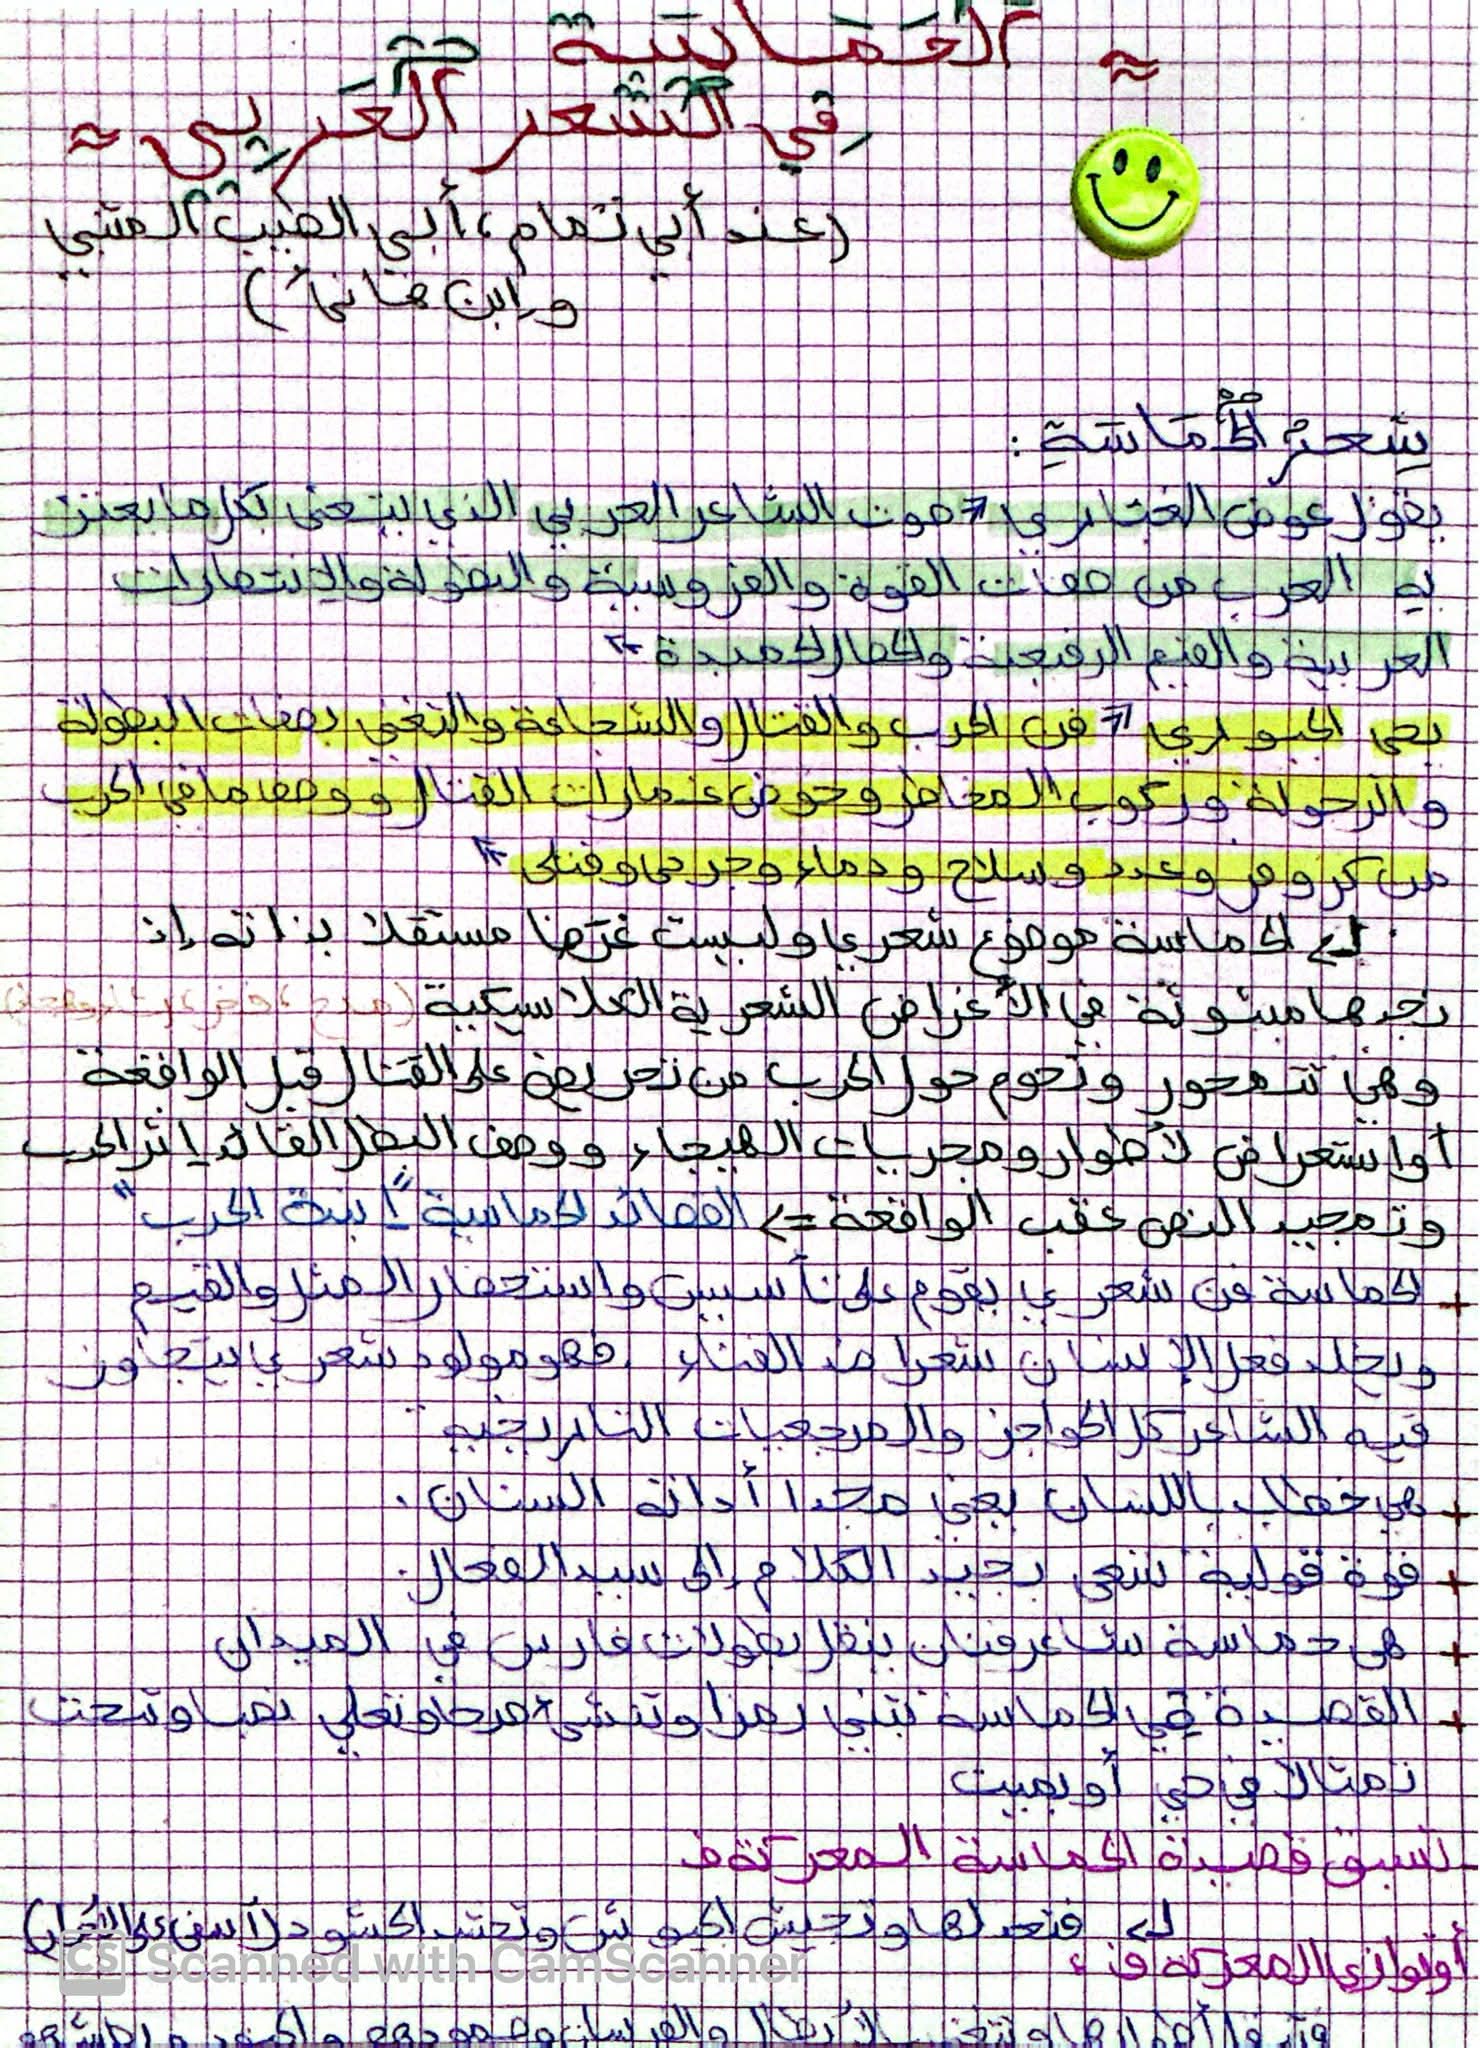 ~ الحَمَاسَة
فِي الشعر العَربِي ~
(عند أبي تمام، أبي الطيب المتنبي
و ابن هانئ)
شِعرُ الحَمَاسَةِ :
يقول عوض الغباري "صوت الشاعر العربي الذي يتغنى بكل ما يعتز
به العرب من صفات القوة والفروسية والبطولة والانتصارات
العربية والقيم الرفيعة والخصال الحميدة"
يحي الجبوري "فن الحرب والقتال والشجاعة والتغني بصفات البطولة
والرجولة وركوب المخاطر وخوض غمارات القتال ووصف ما في الحرب
من كر وفر وعدد وسلاح ودماء وجرحى وقتلى"
الحماسة موضوع شعري وليست غرضا مستقلا بذاته إذ
نجدها مبثوثة في الأغراض الشعرية الكلاسيكية (مدح، فخر،
وهي تتمحور وتحوم حول الحرب من تحريض على القتال قبل الواقعة
أو استعراض لأطوار ومجريات الهيجاء ووصف البطل القائد إثر الحرب
وتمجيد النصر عقب الواقعة => القصائد الحماسية "ابنة الحرب"
+ الحماسة فن شعري يقوم على تأسيس واستحضار المثل والقيم
ويخلد فعل الإنسان شعرا ضد الفناء فهو مولود شعري يتجاوز
فيه الشاعر كل الحواجز والمرجعيات التاريخية
+ هي خطاب باللسان يعني مجدا أداته السنان.
+ قوة قولية تسعى بجيد الكلام إلى سيد الفعال.
+ هي حماسة شاعر فنان ينقل بطولات فارس في الميدان
+ القصيدة في الحماسة تبني رمزا وتنشئ صرحا وتعلي نصبا وتنحت
تمثالا في حي أو ميت
تسبق قصيدة الحماسة المعركة فـ
فتعد لها وتجيش الجيوش وتحشد الحشود
أو توازي المعركة فـ
Scanned with CamScanner
CS